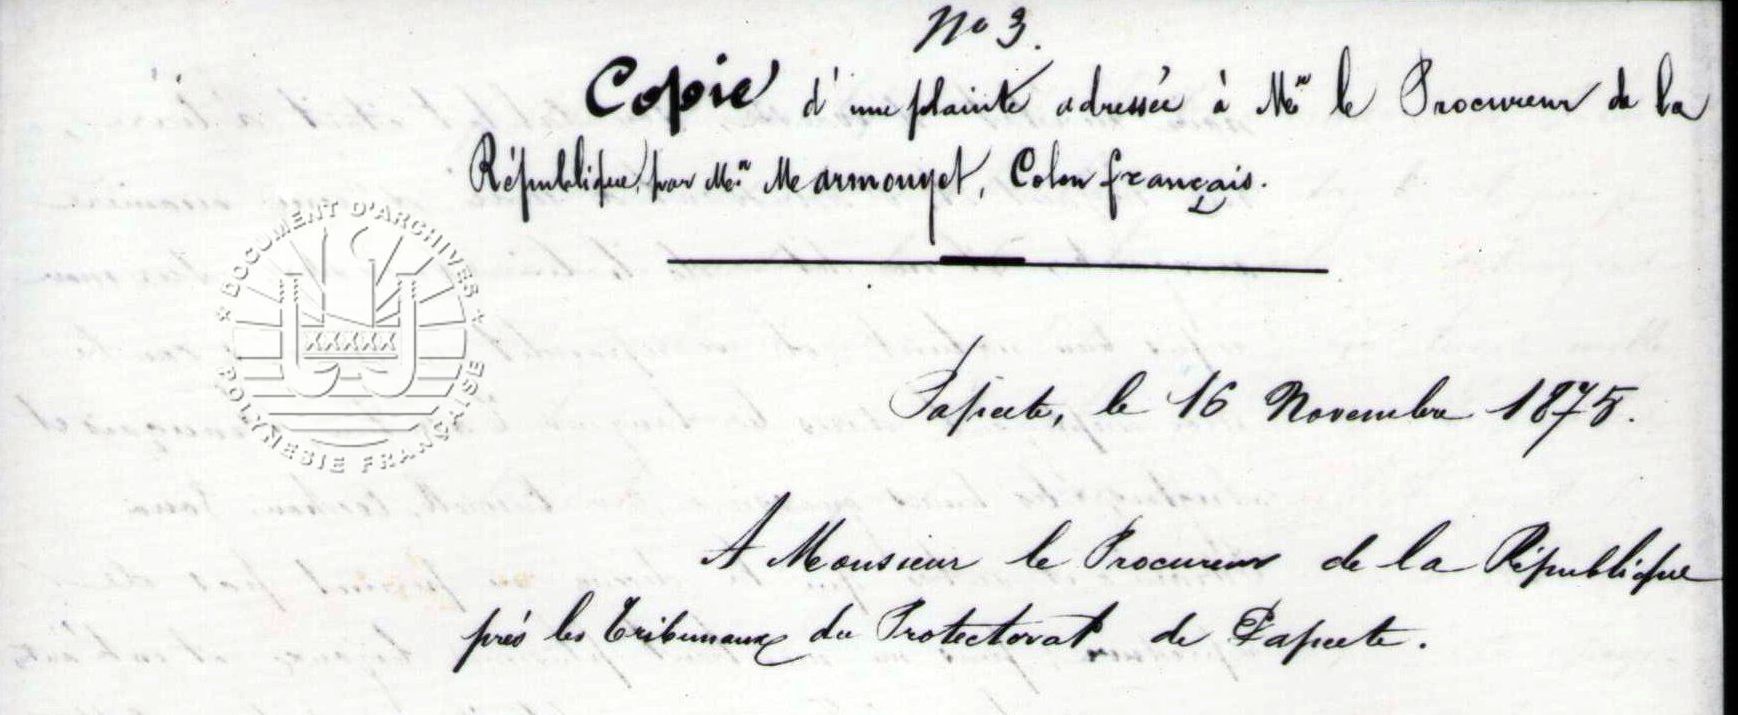 No 3.
Copie d'une plainte adressée à Mr le Procureur de la
République, par Mr Marmouyet, Colon français.
DOCUMENT D'ARCHIVES
XXXXX
POLYNESIE FRANÇAISE
Papeete, le 16 Novembre 1875.
A Monsieur le Procureur de la République
près les Tribunaux du Protectorat de Papeete.